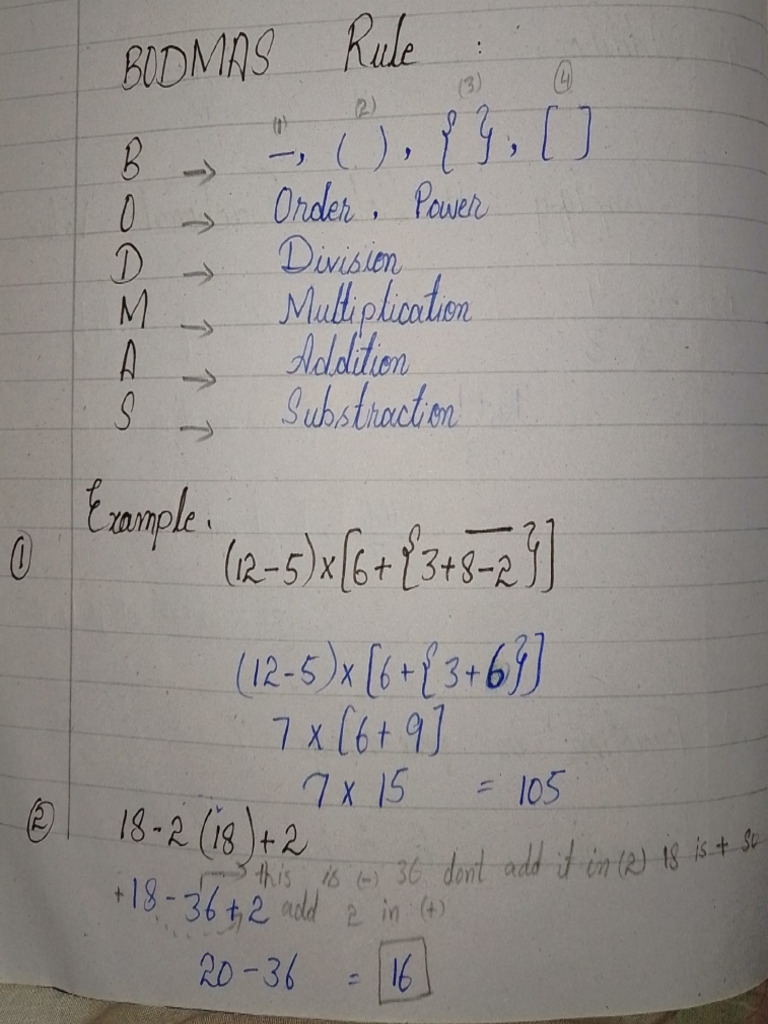 BODMAS Rule :
(1) (2) (3) (4)
B → —, ( ), { }, [ ]
O → Order, Power
D → Division
M → Multiplication
A → Addition
S → Substraction
Example.
① (12-5)×[6+{3+8̅-̅2̅}]
(12-5)×[6+{3+6}]
7×[6+9]
7×15 = 105
② 18-2(18)+2
this is (-) 36 dont add it in (2) 18 is + so
+18-36+2 add 2 in (+)
20-36 = 16